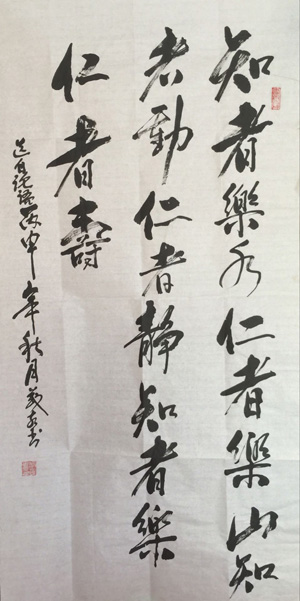 知者樂水仁者樂山知
者動仁者静知者樂
仁者壽
选自论语丙申年秋月